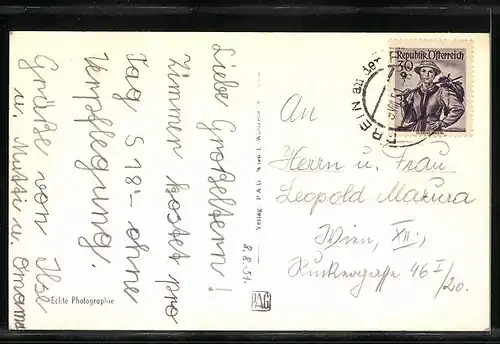 Liebe Großeltern!
Zimmer kostet pro
Tag S 18'- ohne
Verpflegung.
Grüße von Ilse
u. Mutti u. Omama
8.8.51.
Echte Photographie
Verlag P.A.G. Wien I.
PAG
Republik Österreich
30
REIN an der
An
Herrn u. Frau
Leopold Mazura
Wien, XII.,
46 I/20.